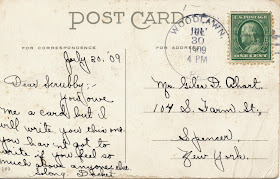 POST CARD
FOR CORRESPONDENCE
FOR ADDRESS
WOODLAWN
JUL
30
1909
4 PM
July 30. '09
Dear Scrubby:-
you owe
me a card but I
will write you this one.
you hav'nt got to
write if you feel so
much above anyone else.
So long.
Mr. Giles P. Ahart.
104 S. Farm St,
Spencer,
New York.